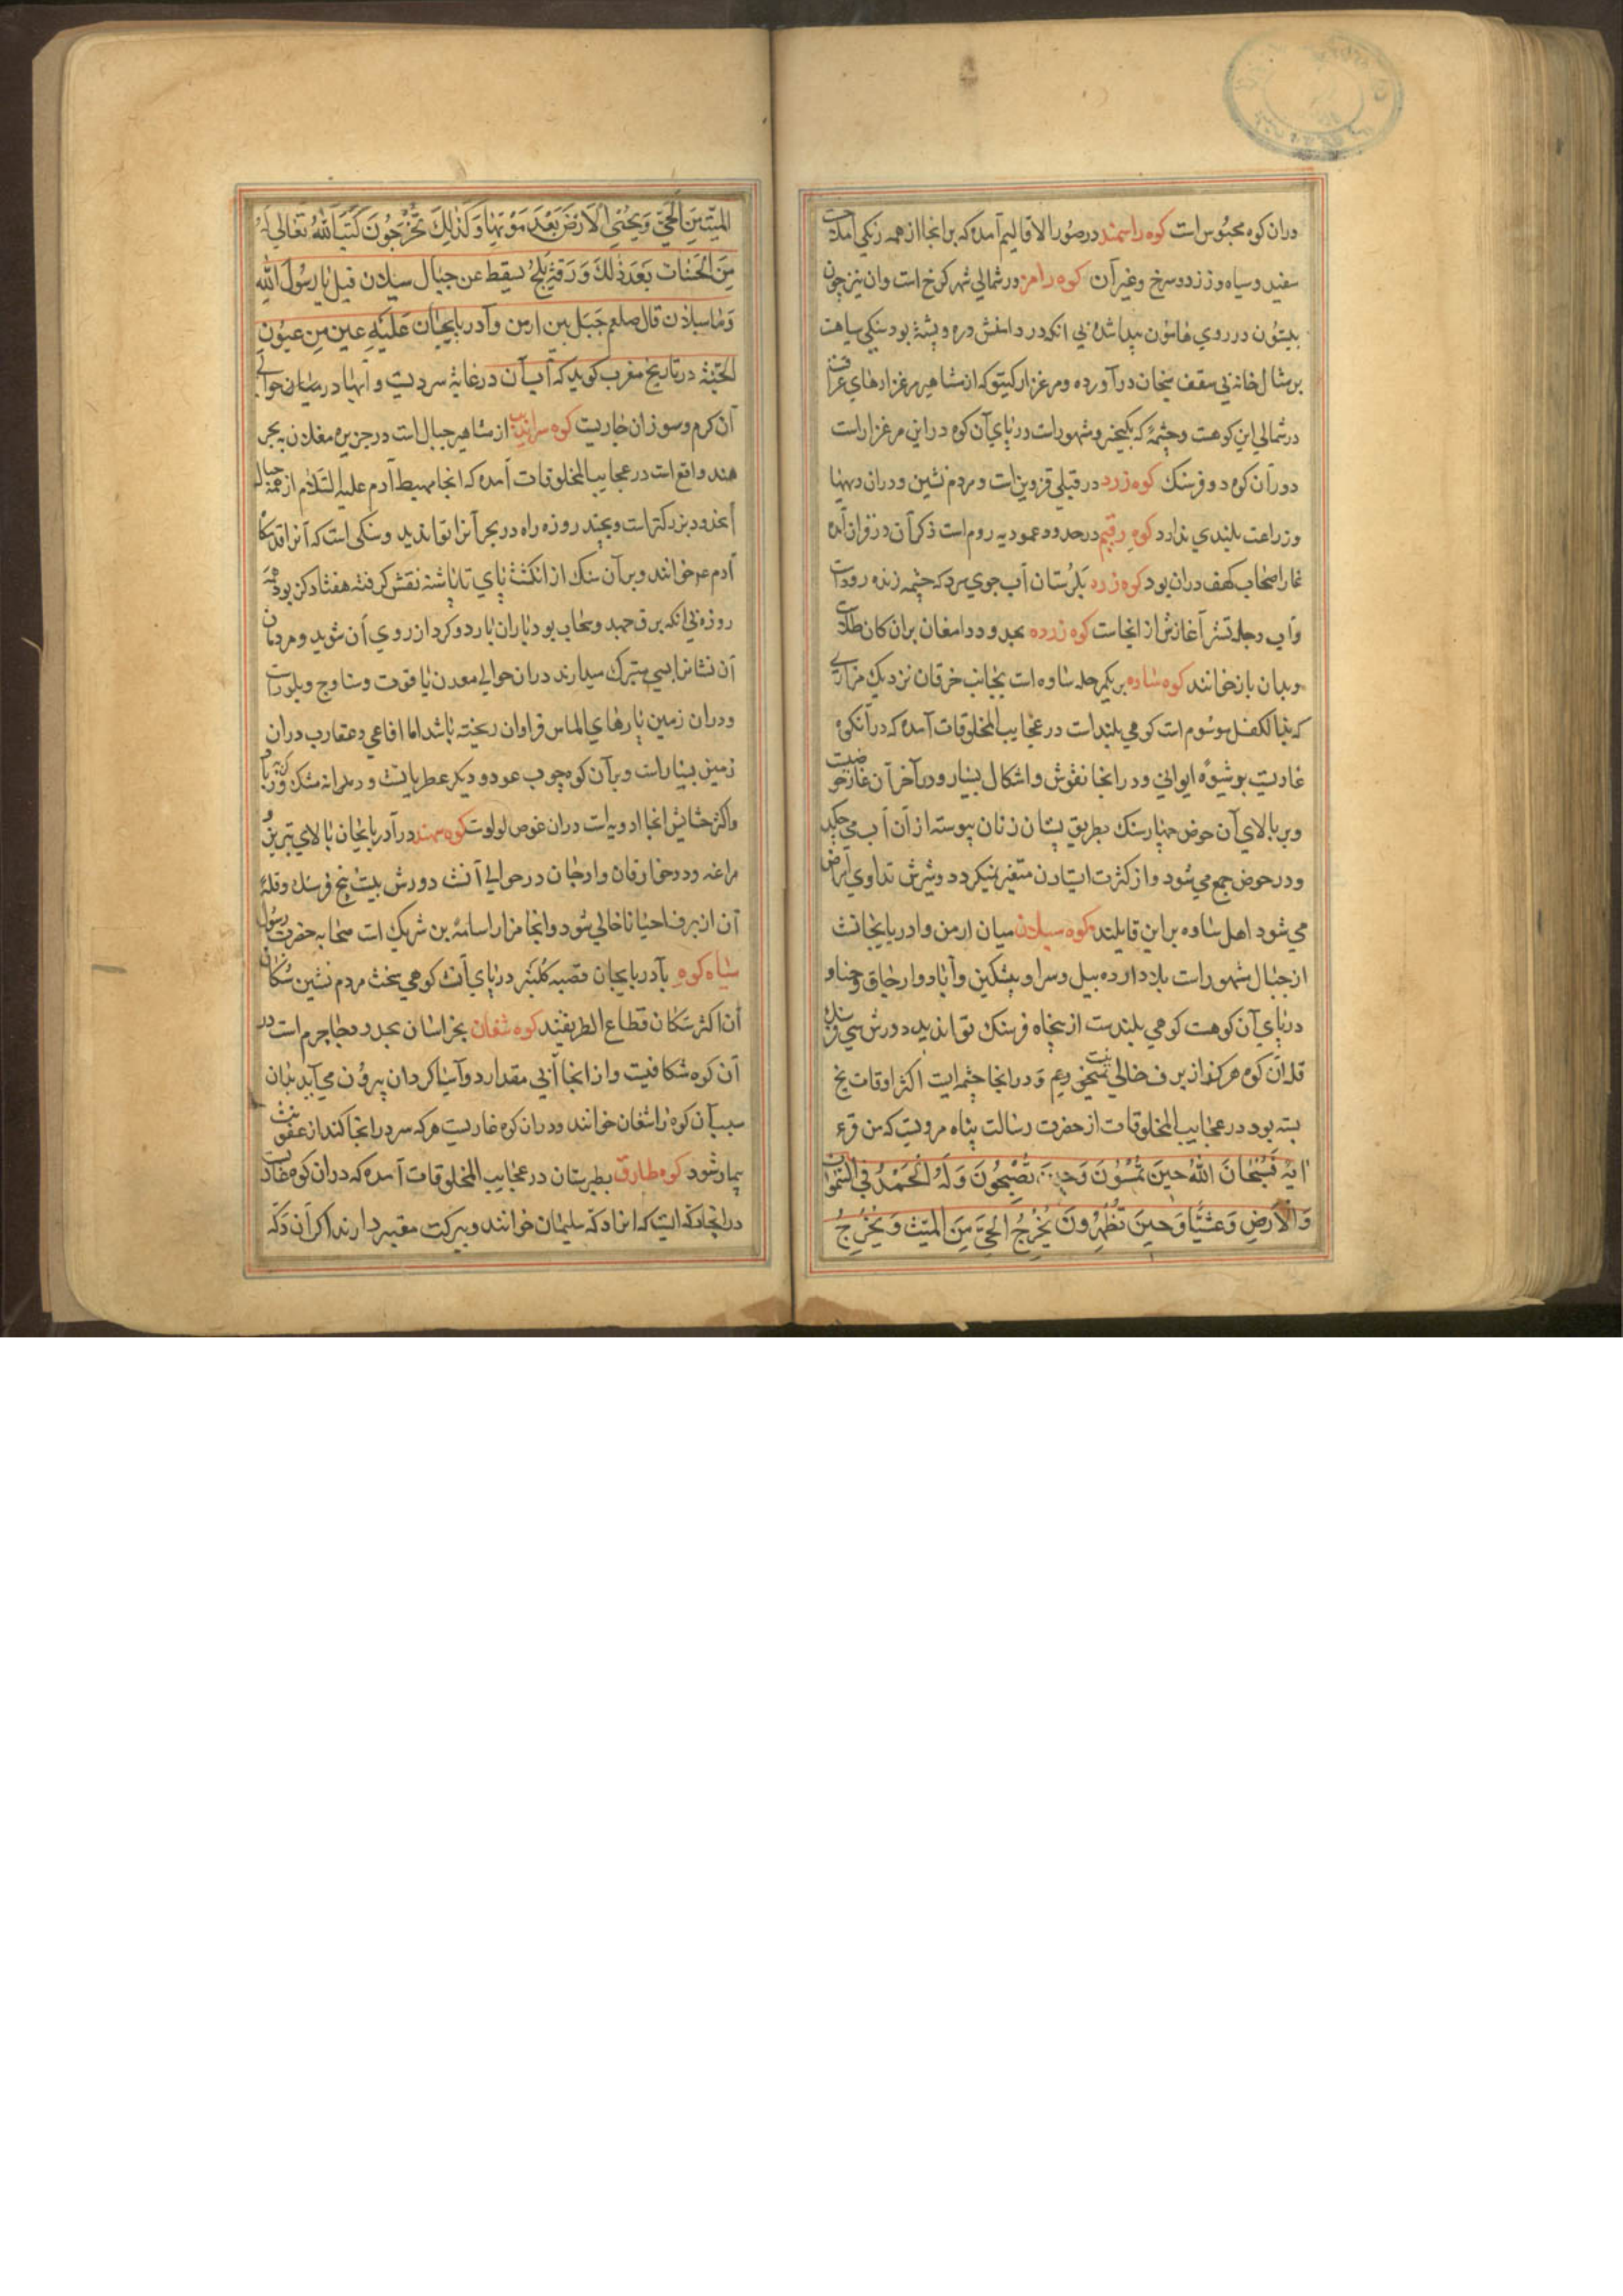 دران کوه محبوس است کوه راسمند در صور الاقالیم آمده که بر انجا از همه رنکی املاحست
سفید و سیاه و زرد و سرخ و غیر آن کوه رامز در شمالی شهر کرخ است وان نیز چون
بیستون در روی هامون پیدا شده بی انکه در دامنش دره و پشته بود سنکی سیاهست
بر مثال خانه بی سقف در آورده و مرغزار کیتو که از مشاهیر مرغزارهای عراقست
در شمالی این کوهست و چشمه که بکیخسرو مشهورات در پای آن کوه در این مرغزار است
دور آن کوه دو فرسنک کوه زرد در قبلی قزوین است و مردم نشین و دران دیهها
وزراعت بلندی ندارد کوه رقیم در حدود عموریه روم است ذکر آن در قرآن آمده
غار اصحاب کهف دران بود کوه زرده بلرستان آب جوی سرد که چشمه زنده رودات
وآب دجله تستر آغازش از انجاست کوه زرده بحدود دامغان بران کان طلاست
وبدان باز خوانند کوه ساوه بر یکمرحله ساوه است بجانب خرقان نزدیک مزاری
که بذا لکفل موسوم است کوهی بلند است در عجایب المخلوقات آمده که در آنکوه
غاریست بر شیوه ایوانی ودر انجا نقوش و اشکال بسیار ودر آخر آن غار حوضیست
وبر بالای آن حوض چهار سنک بطریق پستان زنان پیوسته از آن آب می چکد
ودر حوض جمع می شود و از کثرت استادن متغیر نمیکردد وشربش تداوی امراض
می شود اهل ساوه براین قایلند کوه سبلان میان ارمن و ادربایجانست
از جبال مشهور است بلاد اردبیل وسراو و پیشکین وآباد وارجاق وخیاو
در پای آن کوهست کوهی بلندست از پنجاه فرسنک توان دید دورش سی فرسنک
قله آن کوه هرکز از برف خالی نیست ودر انجا چشمه ایست اکثر اوقات یخ
بسته بود در عجایب المخلوقات از حضرت رسالت پناه مرویست که من قرء
ایة فَسُبْحَانَ اللهِ حِینَ تُمْسُونَ وَحِینَ تُصْبِحُونَ وَلَهُ الْحَمْدُ فِی السَّمواتِ
وَالْاَرْضِ وَعَشِیًّا وَحِینَ تُظْهِرُونَ یُخْرِجُ الْحَیَّ مِنَ الْمَیِّتِ وَیُخْرِجُ
الْمَیِّتَ مِنَ الْحَیِّ وَیُحْیِی الْاَرْضَ بَعْدَ مَوْتِهَا وَکَذلِکَ تُخْرَجُونَ کَتَبَ اللهُ تَعَالی لَهُ
مِنَ الْحَسَنات بِعَدَدِ ذلِکَ وَرَقَةِ ثَلْجٍ یسقط عن جبال سبلان قیل یا رسول الله
وما سبلان قال صلعم جبل بین ارمن وآدربایجان علیه عین من عیون
الجنة در تاریخ مغرب کوید که آب آن در غایة سردیست و آبها در میان حوالی
آن کرم وسوزان جاریست کوه سراندیب از مشاهیر جبال است در جزیره ببحر
هند واقع است در عجایب المخلوقات آمده که انجا مهبط آدم علیه السلام از همه جبال
بزرکتر است و بچند روزه راه در بحر آنرا توان دید و سنکی است که آنرا قدمکاه
آدم ع م خوانند وبر آن سنک از انکشت پای تا پاشنه نقش کرفته هفتاد کز بود همه
روزه بی انکه برق جهد وسحاب بود باران بارد و کرد از روی آن شوید و مردمان
آن نشانرا بسی متبرک میدارند دران حوالی معدن یاقوت وسناوج وبلورات
ودران زمین پارهای الماس فراوان ریخته باشد اما افاعی وعقارب دران
زمین بسیار است وبر آن کوه چوب عود ودیکر عطریاتست
واکثر حشایش انجا ادویه است دران غوص لولوست کوه سهند در آدربایجان بالای تبریز و
مراغه ودوخارقان وارجان در حوالی آنست دورش بیست پنج فرسنک وقله
آن از برف احیانا خالی شود وانجا مزار اسامة بن شریک است صحابه حضرت رسول
سیاه کوه بآدربایجان قصبه کلنبر در پای آنست کوهی سخت مردم نشین سکان
آن اکثر سکان قطاع الطریقند کوه شغان بخراسان بحدود جاجرم است در
آن کوه شکافیست و از انجا آبی مقدار دو آسیا کردان بیرون می آید بدان
سبب آن کوه را شغان خوانند ودران کوه غاریست هرکه سر در انجا کند از عفونت
بیمار شود کوه طارق بطبرستان در عجایب المخلوقات آمده که دران کوه مغاریست
در انجا دکه ایست که انرا دکه سلیمان خوانند وببرکت معتبر دارند اکر آن دکه